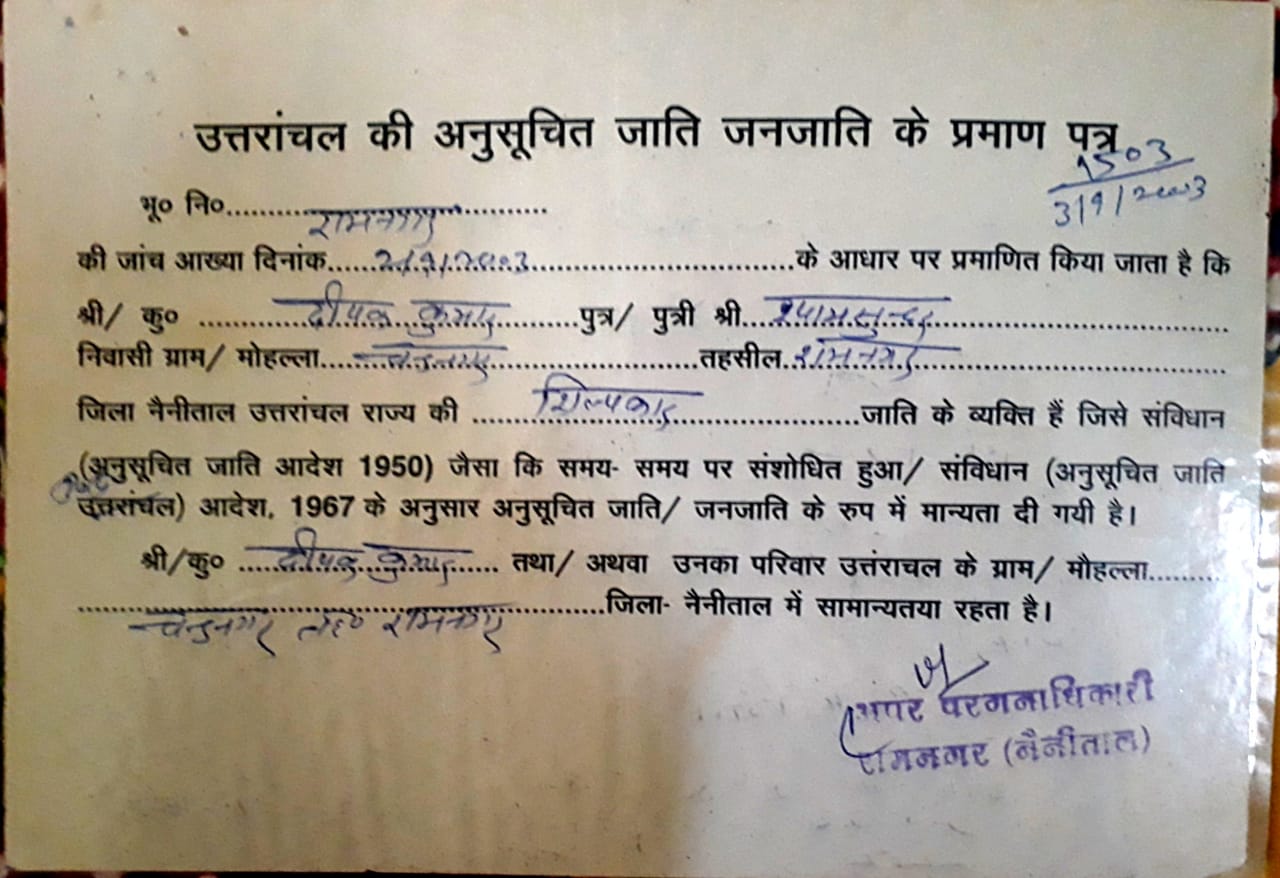 उत्तरांचल की अनुसूचित जाति जनजाति के प्रमाण पत्र
1503
3/9/2003
भू० नि०..............................
रामनगर
की जांच आख्या दिनांक.....2/9/2003..............................के आधार पर प्रमाणित किया जाता है कि
श्री/ कु० ..........दीपक कुमार..........पुत्र/ पुत्री श्री....श्यामसुन्दर..............................
निवासी ग्राम/ मोहल्ला.....चन्द्रनगर....................तहसील..रामनगर..............................
जिला नैनीताल उत्तरांचल राज्य की ..........शिल्पकार....................जाति के व्यक्ति हैं जिसे संविधान
(अनुसूचित जाति आदेश 1950) जैसा कि समय- समय पर संशोधित हुआ/ संविधान (अनुसूचित जाति
उत्तरांचल) आदेश, 1967 के अनुसार अनुसूचित जाति/ जनजाति के रुप में मान्यता दी गयी है।
श्री/कु० .....दीपक कुमार..... तथा/ अथवा उनका परिवार उत्तंराचल के ग्राम/ मौहल्ला.........
..................................................जिला- नैनीताल में सामान्यतया रहता है।
चन्द्रनगर तह० रामनगर
अपर परगनाधिकारी
रामनगर (नैनीताल)